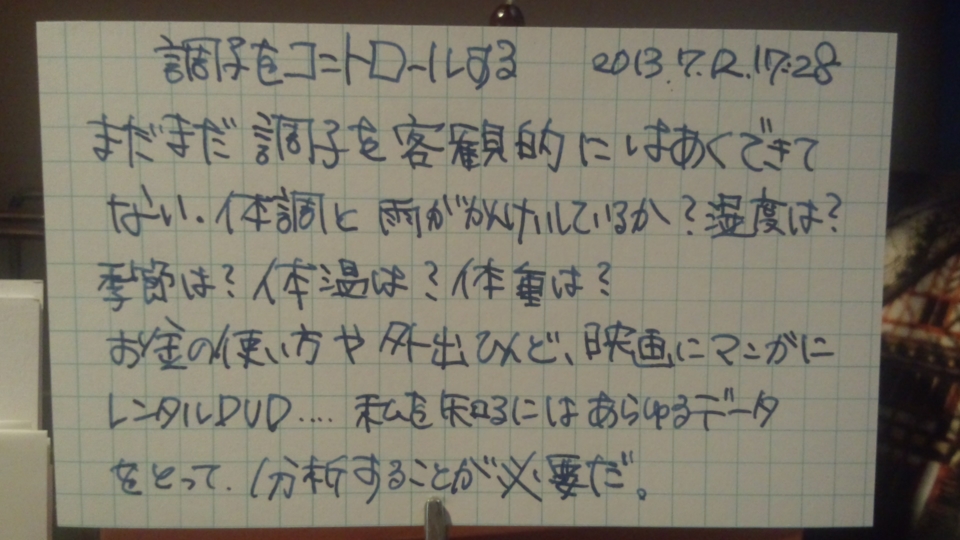 調子をコントロールする 2013.7.12.17:28
まだまだ調子を客観的にはあくできて
ない。体調と雨がかんけいしているか?湿度は?
季節は?体温は?体重は?
お金の使い方や外出ひんど、映画にマンガに
レンタルDVD.... 私を知るにはあらゆるデータ
をとって、分析することが必要だ。